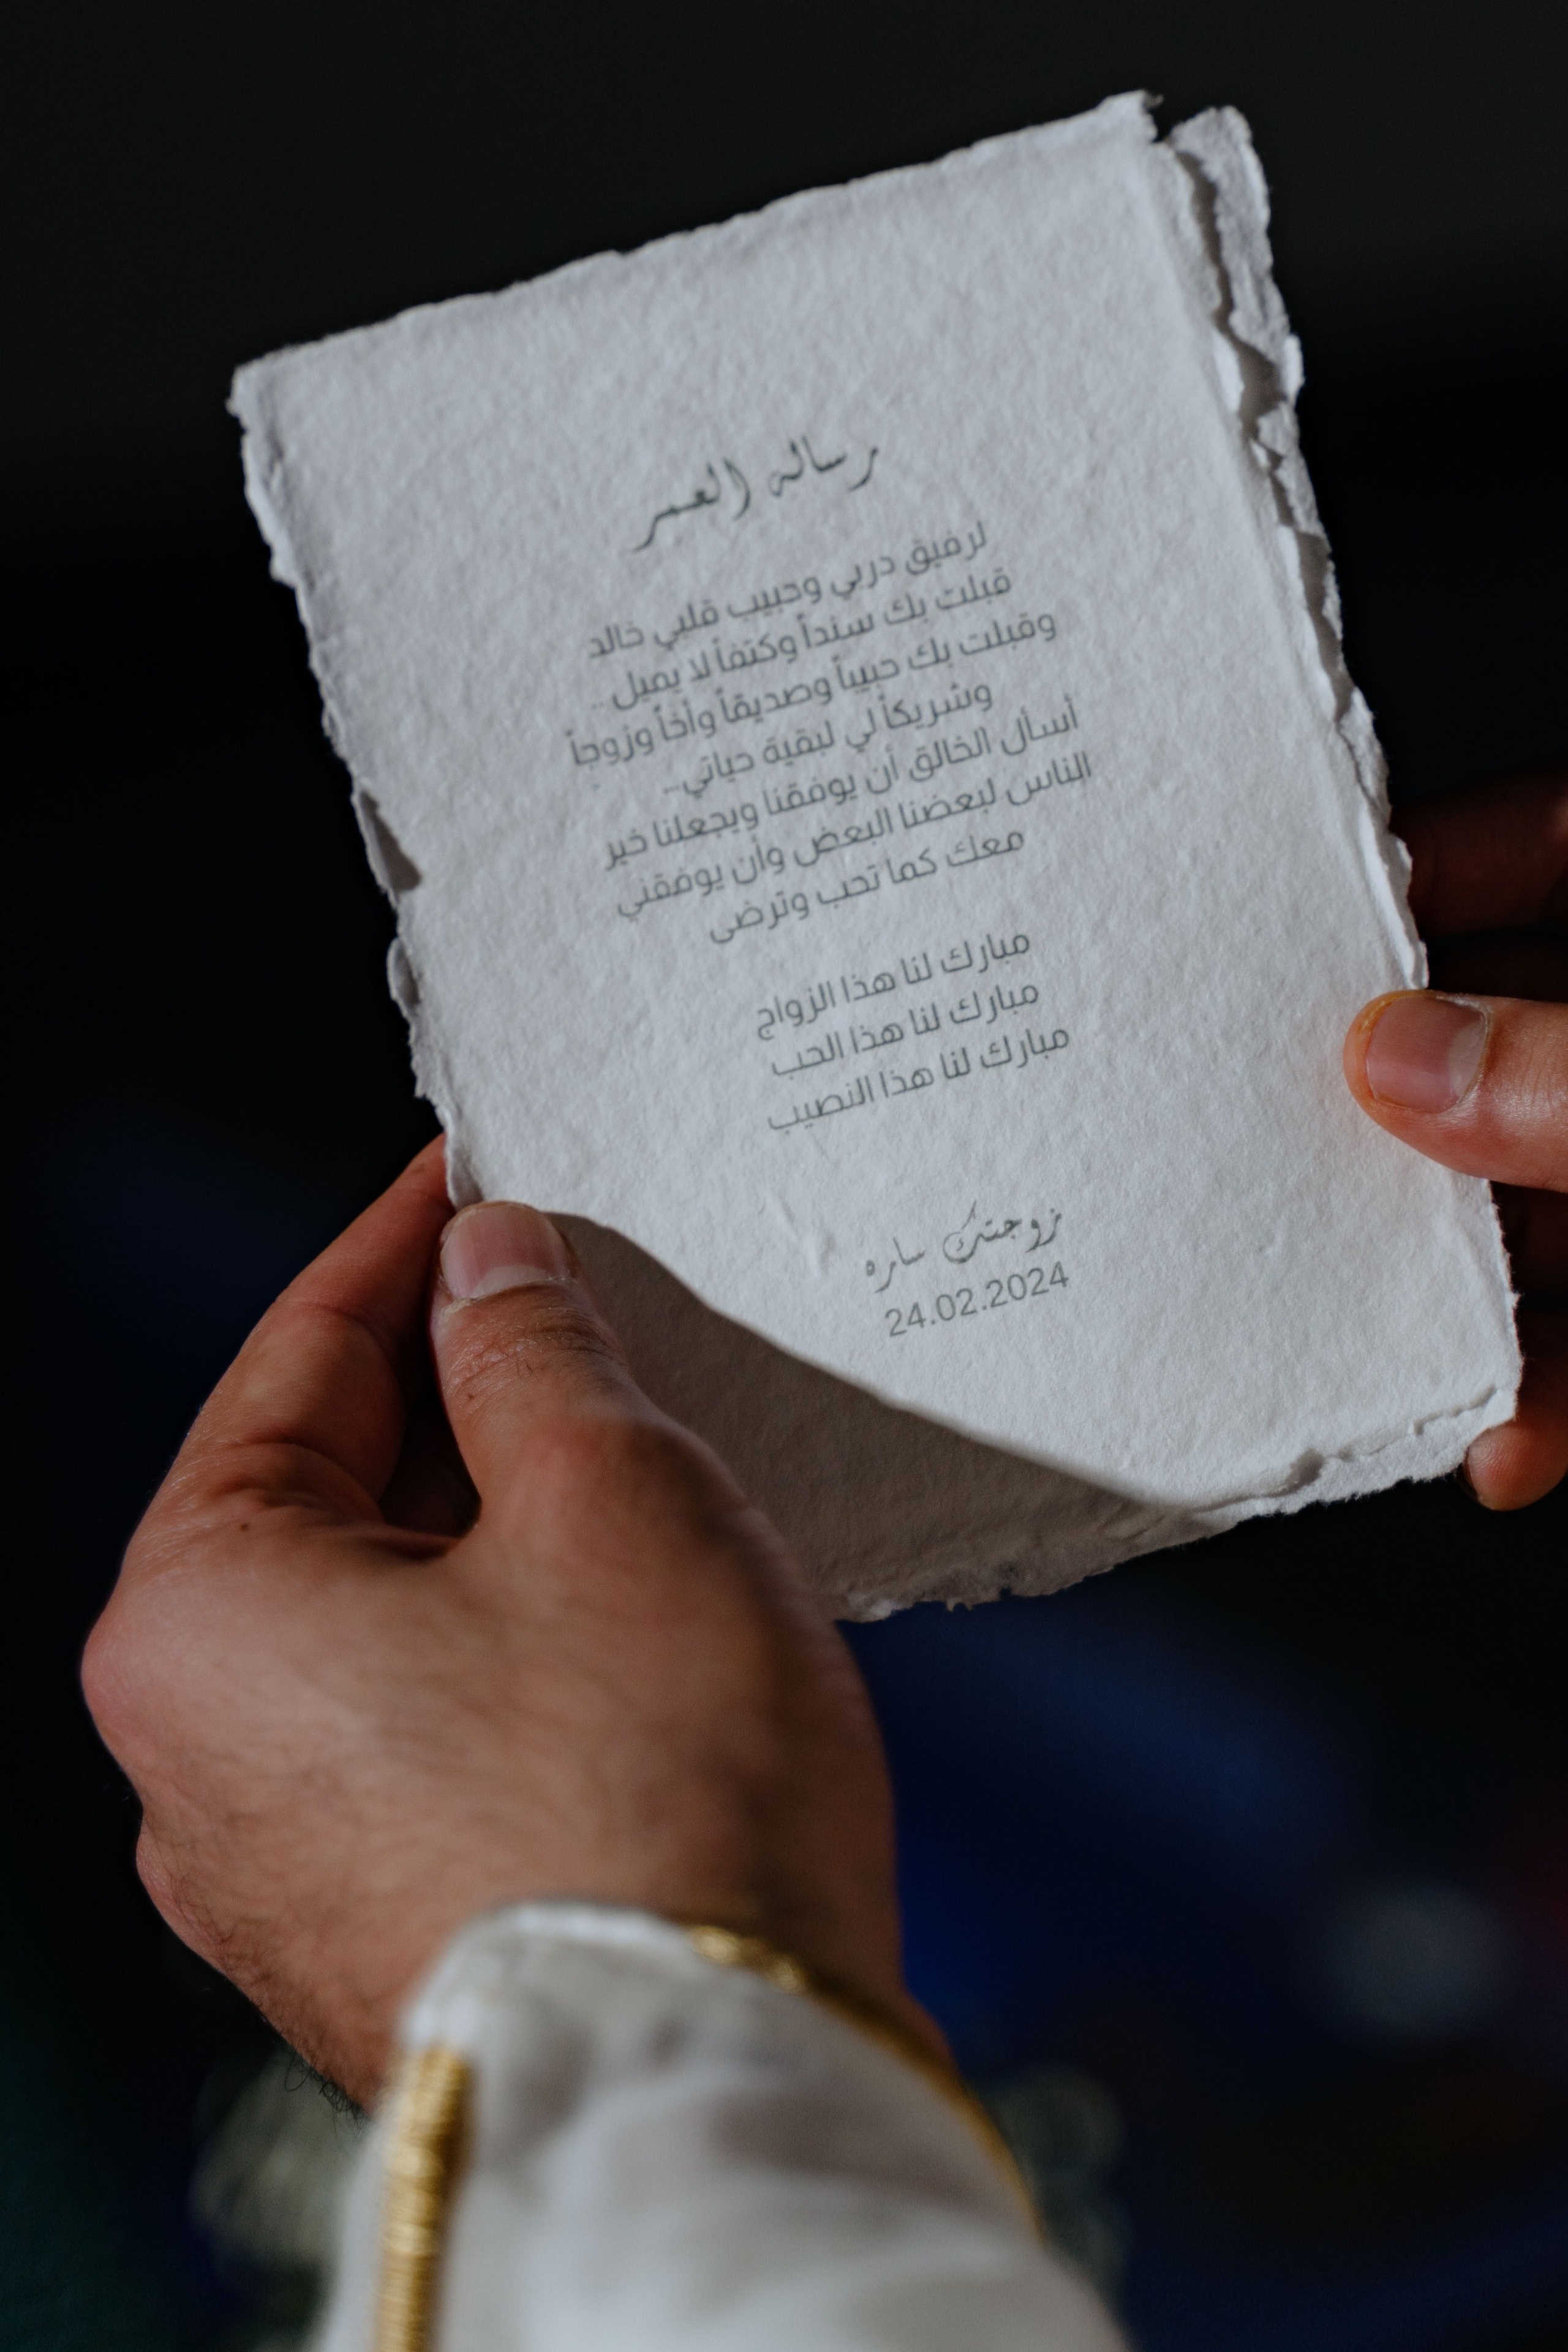 رسالة العمر
لرفيق دربي وحبيب قلبي خالد
قبلت بك سنداً وكتفاً لا يميل ..
وقبلت بك حبيباً وصديقاً وأخاً وزوجاً
وشريكاً لي لبقية حياتي...
أسأل الخالق أن يوفقنا ويجعلنا خير
الناس لبعضنا البعض وأن يوفقني
معك كما تحب وترضى
مبارك لنا هذا الزواج
مبارك لنا هذا الحب
مبارك لنا هذا النصيب
زوجتك ساره
24.02.2024